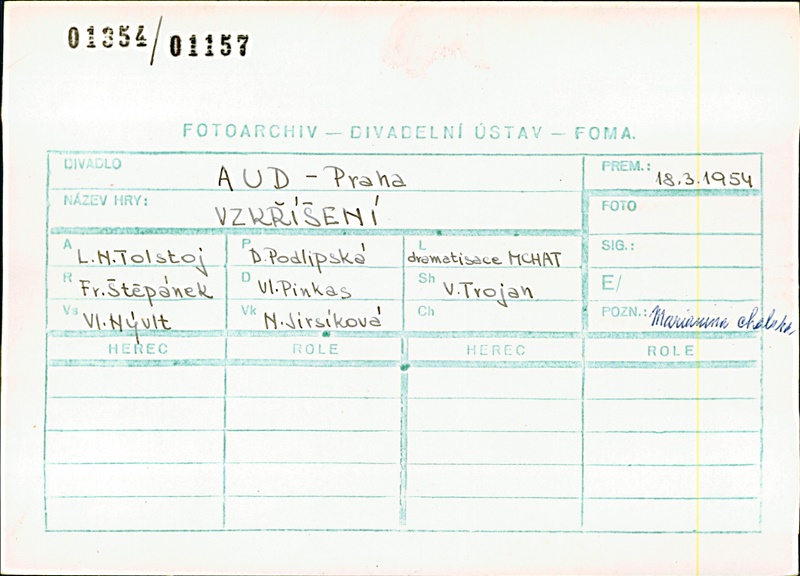 01354/01157
FOTOARCHIV — DIVADELNÍ ÚSTAV — FOMA.
DIVADLO AUD - Praha PREM.: 18.3.1954
NÁZEV HRY: VZKŘÍŠENÍ FOTO
A L.N.Tolstoj P D.Podlipská L dramatisace MCHAT SIG.:
R Fr.Štěpánek D Vl.Pinkas Sh V.Trojan E/
Vs Vl.Nývlt Vk N.Jirsíková Ch POZN.:
HEREC ROLE HEREC ROLE